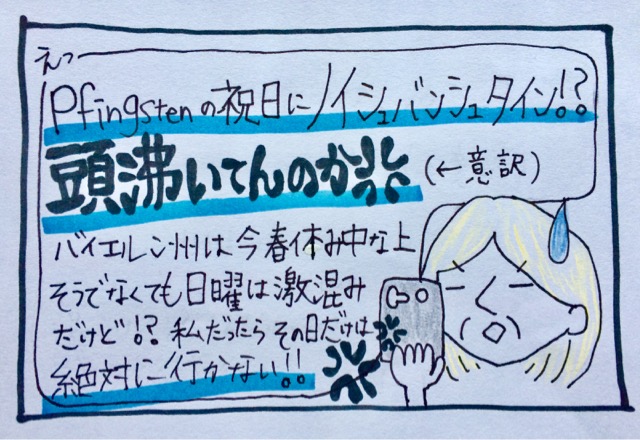 えっ
Pfingstenの祝日にノイシュバンシュタイン!?
頭沸いてんのか
(←意訳)
バイエルン州は今春休み中な上
そうでなくても日曜は激混み
だけど!? 私だったらその日だけは
絶対に行かない!!